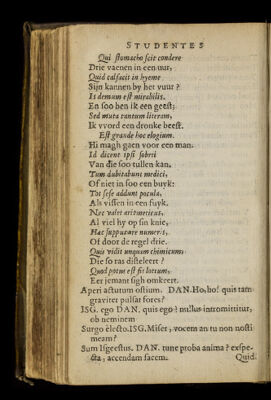 STUDENTES
Qui stomacho scit condere
Drie vaenen in een uur,
Quid calfacit in hyeme
Sijn kannen by het vuur?
Is demum est mirabilis.
En soo ben ik een geest;
Sed muta tantum literam,
Ik vvord een dronke beest.
Est grande hoc elogium.
Hi magh gaen voor een man.
Id dicent ipsi sobrii
Van die soo tullen kan.
Tum dubitabunt medici,
Of niet in soo een buyk:
Tot sese addunt pocula,
Als vissen in een fuyk.
Nec valet aritmeticus,
Al viel hy op sin knie,
Hac supputare numeris,
Of door de regel drie.
Quis vidit unquam chimicum,
Die so ras disteleert?
Quod potus est fit lotium,
Eer jemant sigh omkeert.
Aperi actutum ostium. DAN. Ho, ho! quis tam
graviter pulsat fores?
ISG. ego DAN. quis ego? nullus intromittitur,
ob neminem
Surgo è lecto. ISG. Miser, vocem an tu non nosti
meam?
Sum Isgeestus. DAN. tune proba anima? exspe-
cta, accendam facem.
Quid